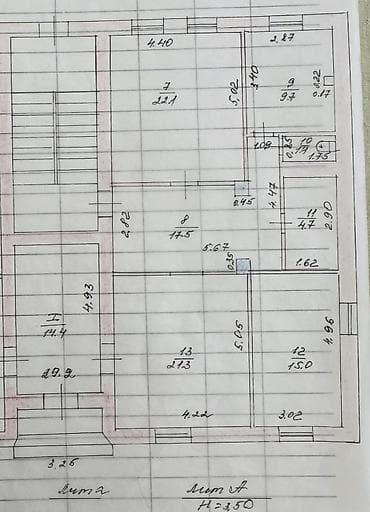 4.40
2.27
7
22.1
5,02
3.40
9
9.7
0.22
0.17
1.09
0.85
10
1.75
0.45
4.47
2,82
8
17.5
11
4.7
2.90
5.67
0.35
1.62
I
14.4
4.93
29.2
13
21.3
5.05
12
15.0
4.96
4.22
3.02
3.26
лит а
лит А
H=2,50